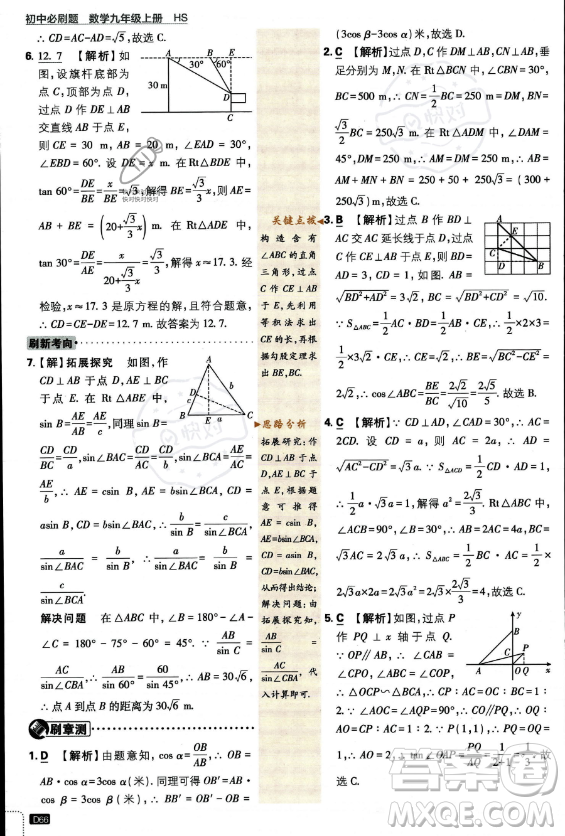 初中必刷题 数学九年级上册 HS
∴ CD=AC-AD=√5,故选C.
6. 12.7 【解析】如
图,设旗杆底部为
点C,顶部为点D,
过点D作DE⊥AB
交直线AB于点E,
30° 60°
30 m
A
B
C
D
E
则CE=30 m,AB=20 m,∠EAD=30°,
∠EBD=60°. 设DE=x m. 在Rt△BDE中,
tan 60°=DE/BE=x/BE=√3,解得BE=√3/3 x m,则AE=
AB+BE=(20+√3/3 x) m. 在Rt△ADE中,
tan 30°=DE/AE=x/(20+√3/3 x)=√3/3,解得x≈17.3. 经
检验,x≈17.3是原方程的解,且符合题意,
∴ CD=CE-DE=12.7 m. 故答案为12.7.
刷新考向
7.【解】拓展探究 如图,作
CD⊥AB于点D,AE⊥BC
于点E. 在Rt△ABE中,
sin B=AE/AB=AE/c,同理sin B=
A
B
C
D
E
b
c
a
CD/BC=CD/a,sin∠BAC=CD/AC=CD/b,sin∠BCA=AE/AC=
AE/b,∴ AE=csin B,AE=bsin∠BCA,CD=
asin B,CD=bsin∠BAC,∴ a/sin∠BAC=b/sin B,
b/sin B=c/sin∠BCA,∴ a/sin∠BAC=b/sin B=
c/sin∠BCA.
解决问题 在△ABC中,∠B=180°-∠A-
∠C=180°-75°-60°=45°. ∵ AB/sin C=
AC/sin∠CBA,∴ AB/sin 60°=60/sin 45°,∴ AB=30√6 m,
∴ 点A到点B的距离为30√6 m.
刷章测
1. D 【解析】由题意知,cos α=OB/AB,∴ OB=
AB·cos α=3cos α(m). 同理可得OB′=
AB·cos β=3cos β(m),∴ BB′=OB′-OB=
D66
关键点拨
构造含有
∠ABC的直角
三角形,过点
C作CE⊥AB
于E,先利用
等积法求出
CE的长,再根
据勾股定理求
出BE,BC.
思路分析
拓展研究:作
CD⊥AB于点
D,AE⊥BC于
点E,根据题
意可推得
AE=csin B,
AE=bsin∠BCA
CD=asin B,
CD=bsin∠BAC,
从而得出结论;
解决问题:由
拓展探究知,
AB/sin C=
AC/sin∠CBA,代
入计算即可.
(3cos β-3cos α) m. 故选D.
2. C 【解析】过点C作CM⊥AB,CN⊥AB,垂
足分别为M,N. 在Rt△BCN中,∠CBN=30°,
BC=500 m,∴ CN=1/2 BC=250 m,BN=
√3/2 BC=250√3 m. 在Rt△ADM中,∠DAM=
45°,DM=250 m,∴ AM=DM=250 m,∴ AB=
AM+MN+BN=250+50+250√3=(300+
250√3) m,故选C.
3. B 【解析】过点B作BD⊥
AC交AC延长线于点D,过点
C作CE⊥AB于点E. ∵ BD=
AD=3,CD=1,∴ AB=
√(BD²+AD²)=3√2,BC=√(BD²+CD²)=√10.
∵ S△ABC=1/2 AC·BD=1/2 AB·CE,∴ 1/2×2×3=
1/2×3√2·CE,∴ CE=√2,∴ BE=√(BC²-CE²)=
2√2,∴ cos∠ABC=BE/BC=2√2/√10=2√5/5. 故选B.
A
B
C
4. C 【解析】∵ ∠ACD=90°,∠D=60°,∴ AC=
2CD. 设CD=a,则AC=2a,∴ AD=
√(AC²-CD²)=√3a. ∵ S△ACD=1/2 CD·AD,
∴ 1/2 a·√3a=1,解得a²=2√3/3. ∵ Rt△ABC中,
∠ACB=90°,∠B=30°,∴ AB=2AC=4a,BC=
√3AC=2√3a,∴ S△ABC=1/2 AC·BC=1/2·2a·
2√3a=2√3a²=2√3×2√3/3=4,故选C.
5. C 【解析】如图,过点P
作PQ⊥x轴于点Q.
∵ OC∥BP,∴ CP∶AC=OC∶BC=1∶
2. ∵ P(1,1),∴ PQ=OQ=
1,∴ AO=2,∴ tan∠OAP=PQ/AQ=1/(2+1)=1/3.
故选C.
y
x
A
B
C
P
O
Q
快对
答案圈
MXQE.COM